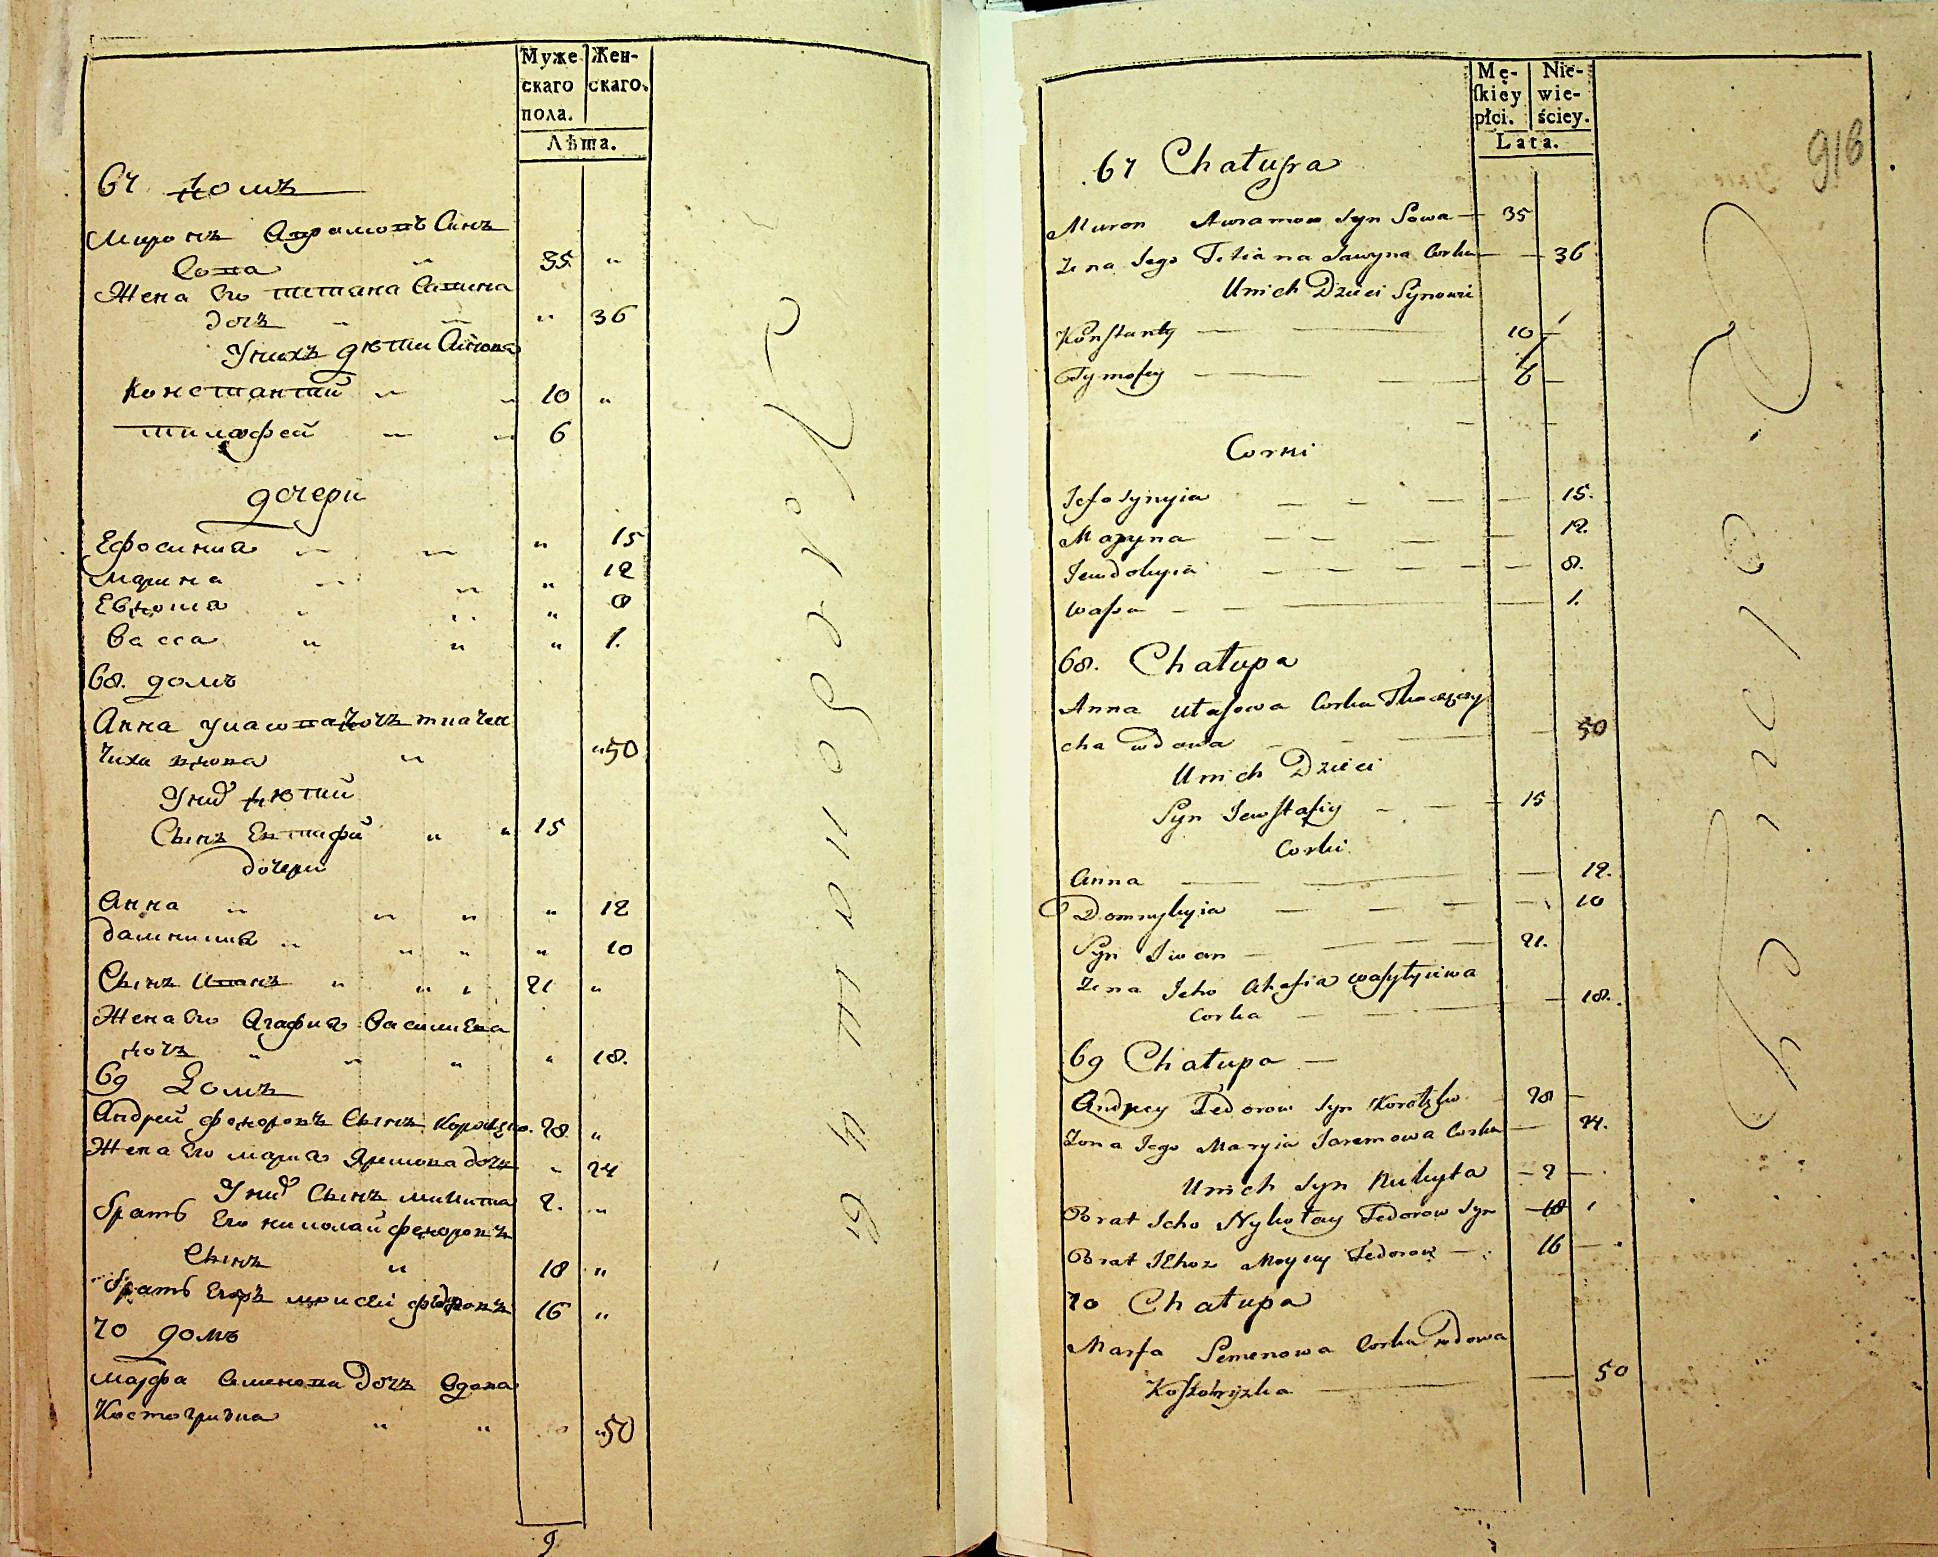 Муже
скаго
пола.
Жен-
скаго.
Лѣта.
67 домъ
Миронъ Аврамовъ Синъ
Сова " 35 "
Жена Его татиана Савина
дочъ " " " 36
Унихъ дѣти Синова
Константий " " 10 "
тимофей " " 6
дочери
Ефосиния " " " 15
Марина " " " 12
Евдоша " " " 8
Васса " " " 1.
68. домъ
Анна Уласовна дочъ ткачен
Чиха вдова " " 50
Унид дѣтий
Сынъ Евтафий " " 15
дочери
Анна " " " " 12
Домникия " " " " 10
Сынъ Иванъ " " " 21 "
Жена Его Агафия Василиева
дочъ " " " " 18.
69 Домъ
Андрей федоровъ Сынъ 28. "
Жена Его мария Яремова дочъ " 24
Унид Сынъ микита 2. "
братъ Его николай федоровъ
Сынъ " 18 "
братъ Мойсей федоровъ 16 "
70 домъ
Марфа Семенова Дочъ Вдова
Костогризка " " " 50
9
Mę-
ſkiey
płci.
Nie-
wie-
ściey.
Lata.
916
67 Chatupa
Muron Awramow Syn Sowa — 35
Zena Jego Tetiana Sawyna Corka — — 36
Unich Dzieci Synowie
Konstanty — — 10 —
Tymofey — — — — 6 —
Corki
Jefosynyia — — — — 15.
Maryna — — — — 12.
Jewdokyia — — — — — — 8.
Wassa — — — — 1.
68. Chatupa
Anna Utasowa Corka Tkaczczy
cha wdowa — — — — 50
Unich Dzieci
Syn Jewstafiy — — — 15
Corki
Anna — — — 12.
Domnykyia — — — — — 10
Syn Iwan — — — — 21.
Zena Jeho Ahafia Wasylyiwa
Corka — — — — — 18.
69 Chatupa —
Andrey Fedorow Syn 28 —
Zona Jego Maryia Jaremowa Corka — 24.
Unich Syn Mykyta — 2 —
Brat Jeho Nykołay Fedorow Syn — 18
Brat Jehoz Moysiy Fedorow — 16 —
70 Chatupa
Marfa Semenowa Corka wdowa
Kostohryzka — — 50